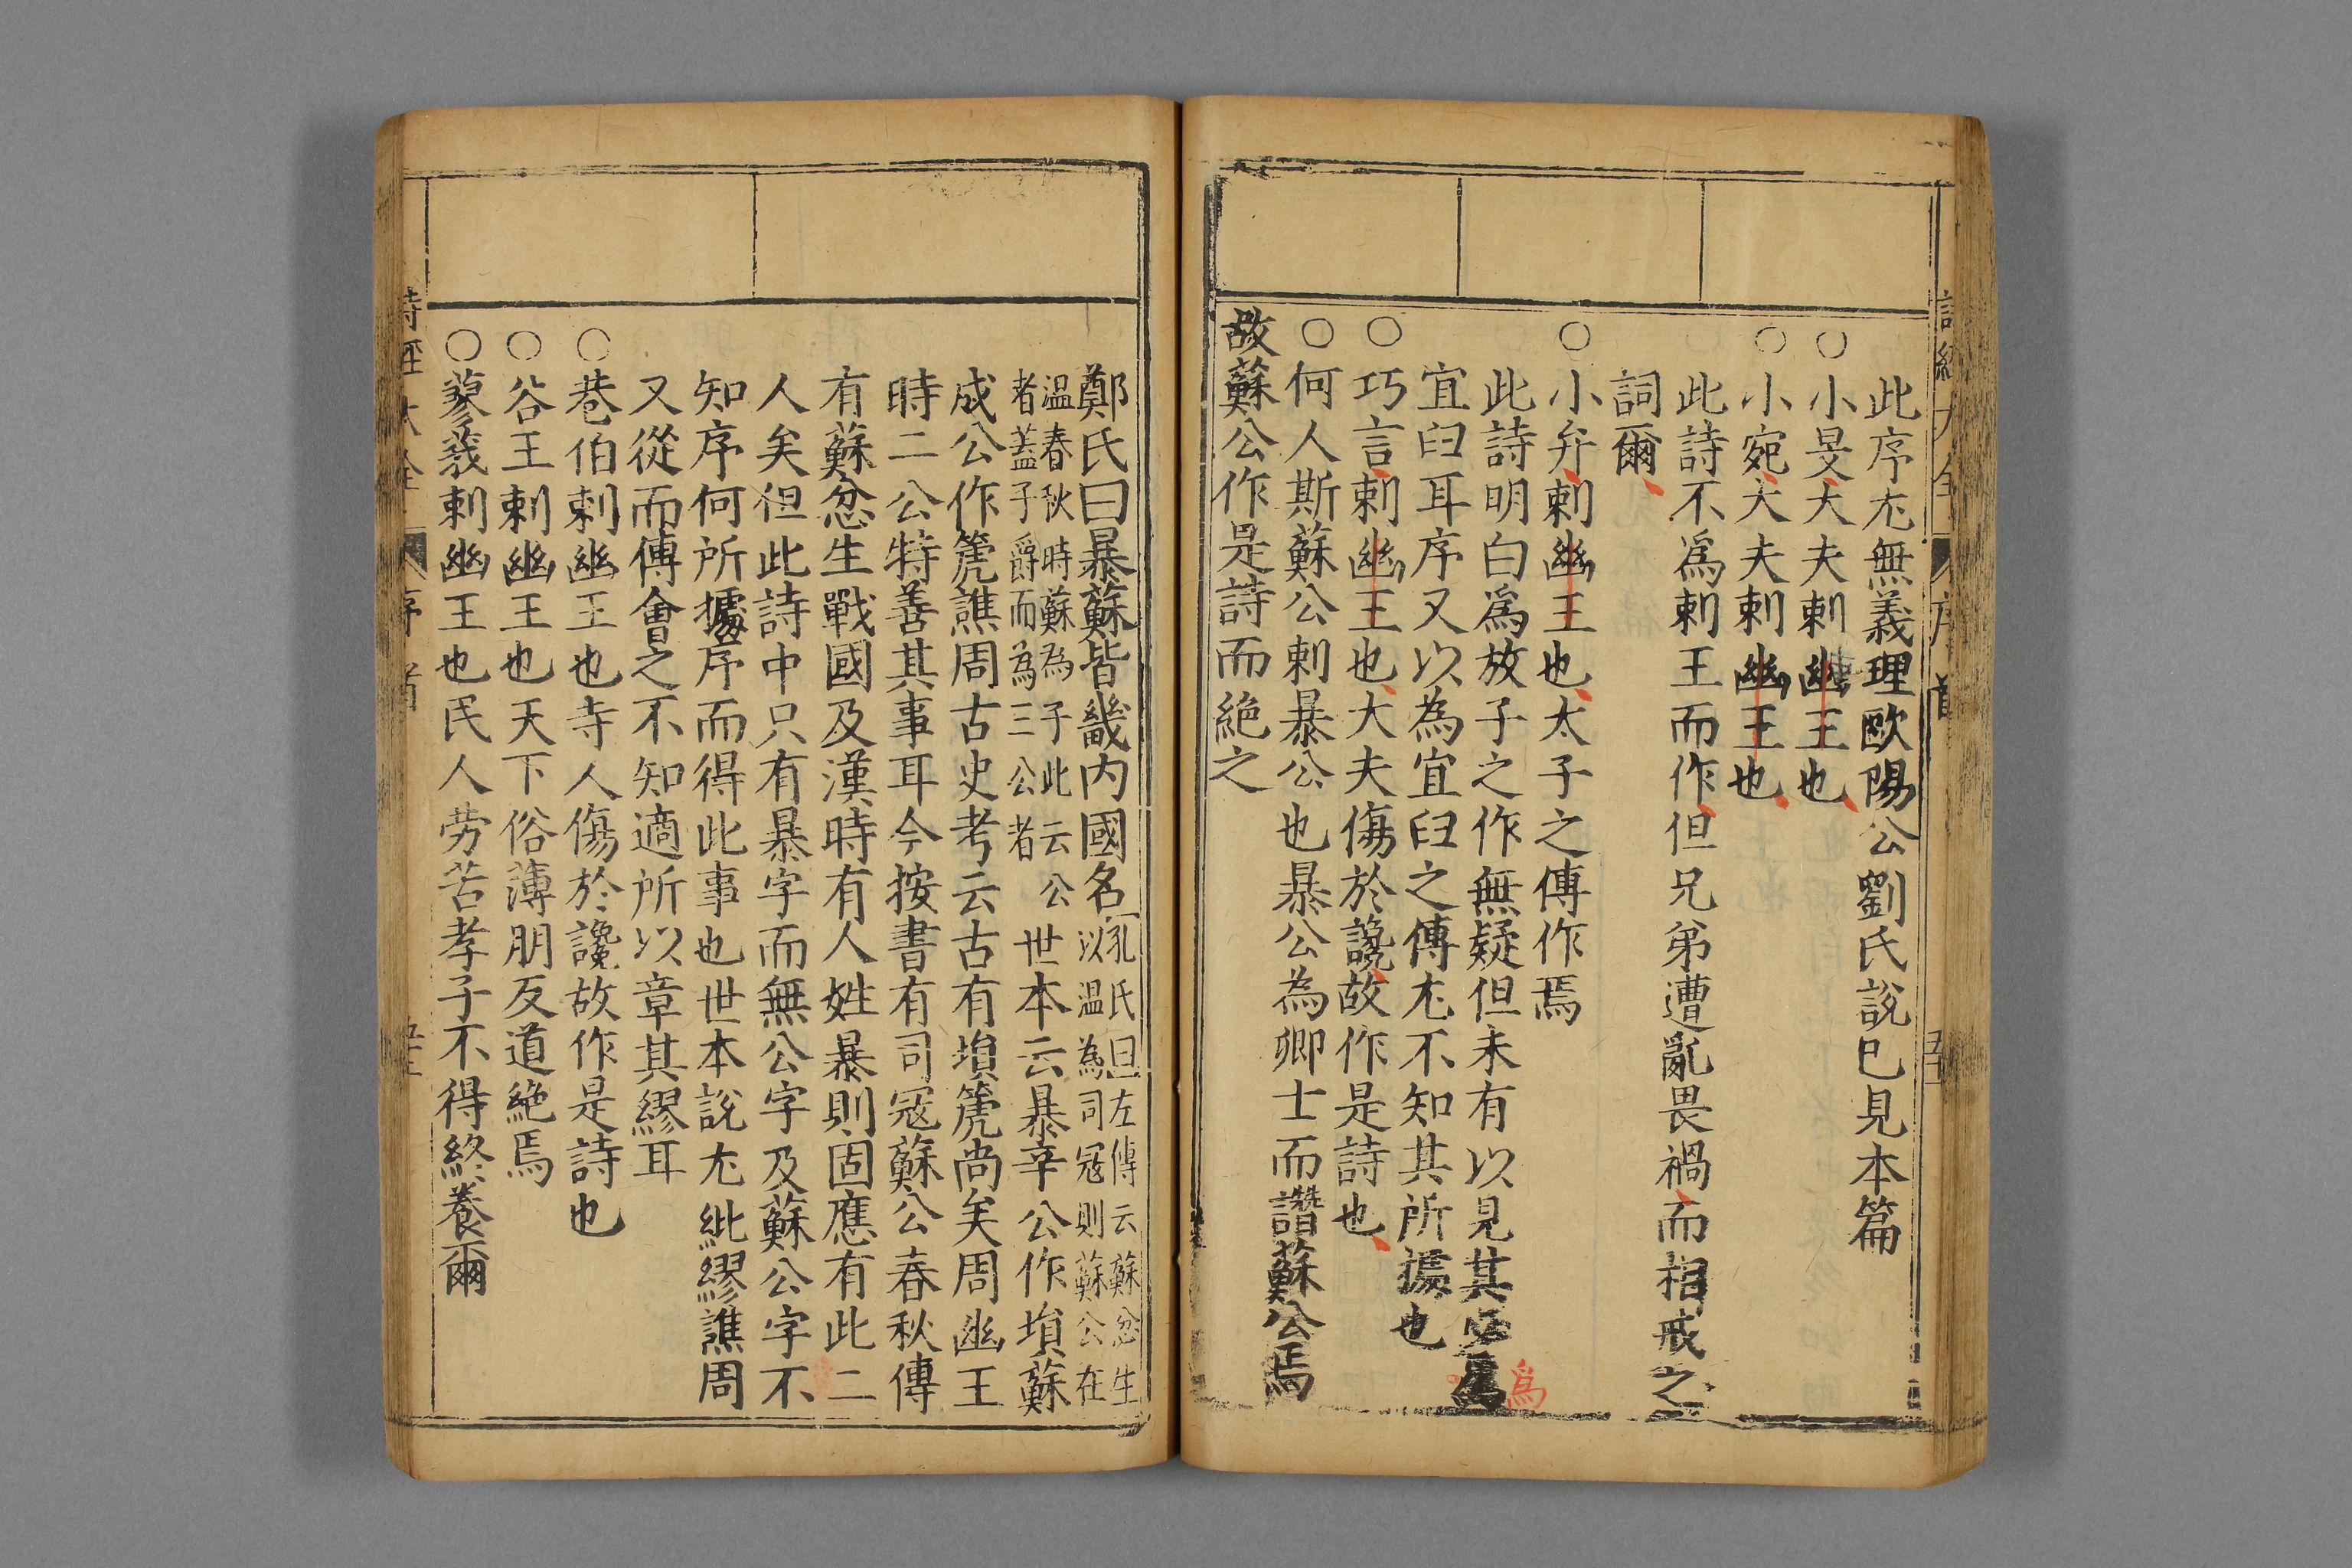 此序尤無義理歐陽公劉氏說已見本篇
○小旻大夫刺幽王也
○小宛大夫刺幽王也
此詩不爲刺王而作但兄弟遭亂畏禍而相戒之
詞爾
○小弁刺幽王也太子之傅作焉
此詩明白爲放子之作無疑但未有以見其必爲
爲
宜臼耳序又以為宜臼之傅尤不知其所據也
○巧言刺幽王也大夫傷於讒故作是詩也
○何人斯蘇公刺暴公也暴公為卿士而譖蘇公焉
故蘇公作是詩而絶之
鄭氏曰暴蘇皆畿内國名孔氏曰左傳云蘇忿生
以温為司冦則蘇公在
温春秋時蘇為子此云公
者蓋子爵而為三公者
世本云暴辛公作塤蘇
成公作篪譙周古史考云古有塤篪尚矣周幽王
時二公特善其事耳今按書有司冦蘇公春秋傳
有蘇忿生戰國及漢時有人姓暴則固應有此二
人矣但此詩中只有暴字而無公字及蘇公字不
知序何所據而得此事也世本說尤紕繆譙周
又從而傅會之不知適所以章其繆耳
○巷伯刺幽王也寺人傷於讒故作是詩也
○谷王刺幽王也天下俗薄朋友道絶焉
○蓼莪刺幽王也民人勞苦孝子不得終養爾